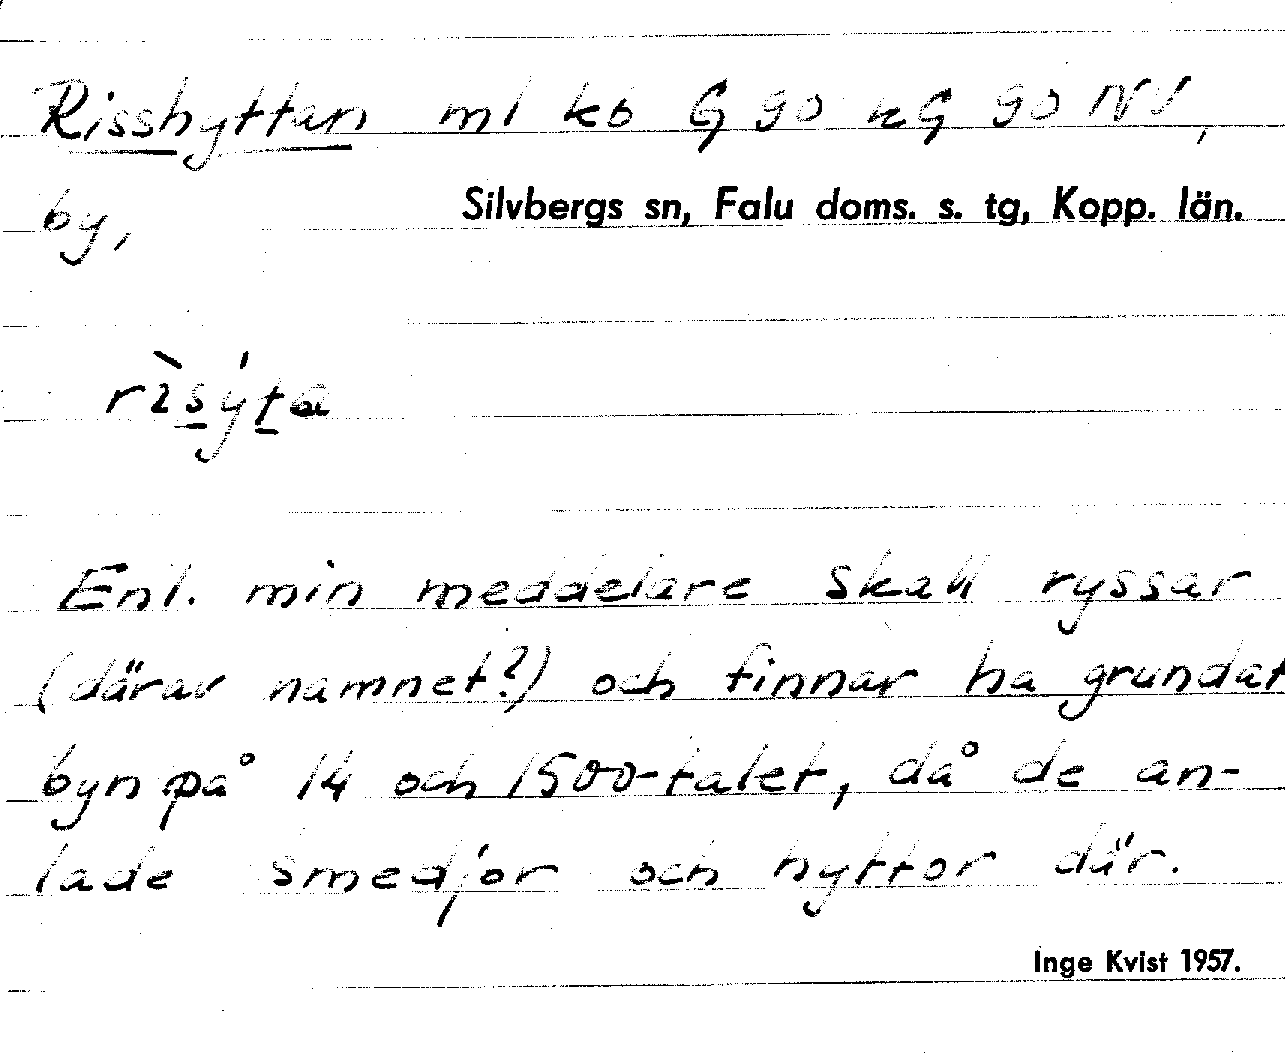 Risshyttan ml kb G 90 nG 90 NV,
by,
Silvbergs sn, Falu doms. s. tg, Kopp. län.
Enl. min meddelare skall ryssar
(därav namnet?) och finnar ha grundat
byn på 14 och 1500-talet, då de an-
lade smedjor och hyttor där.
Inge Kvist 1957.